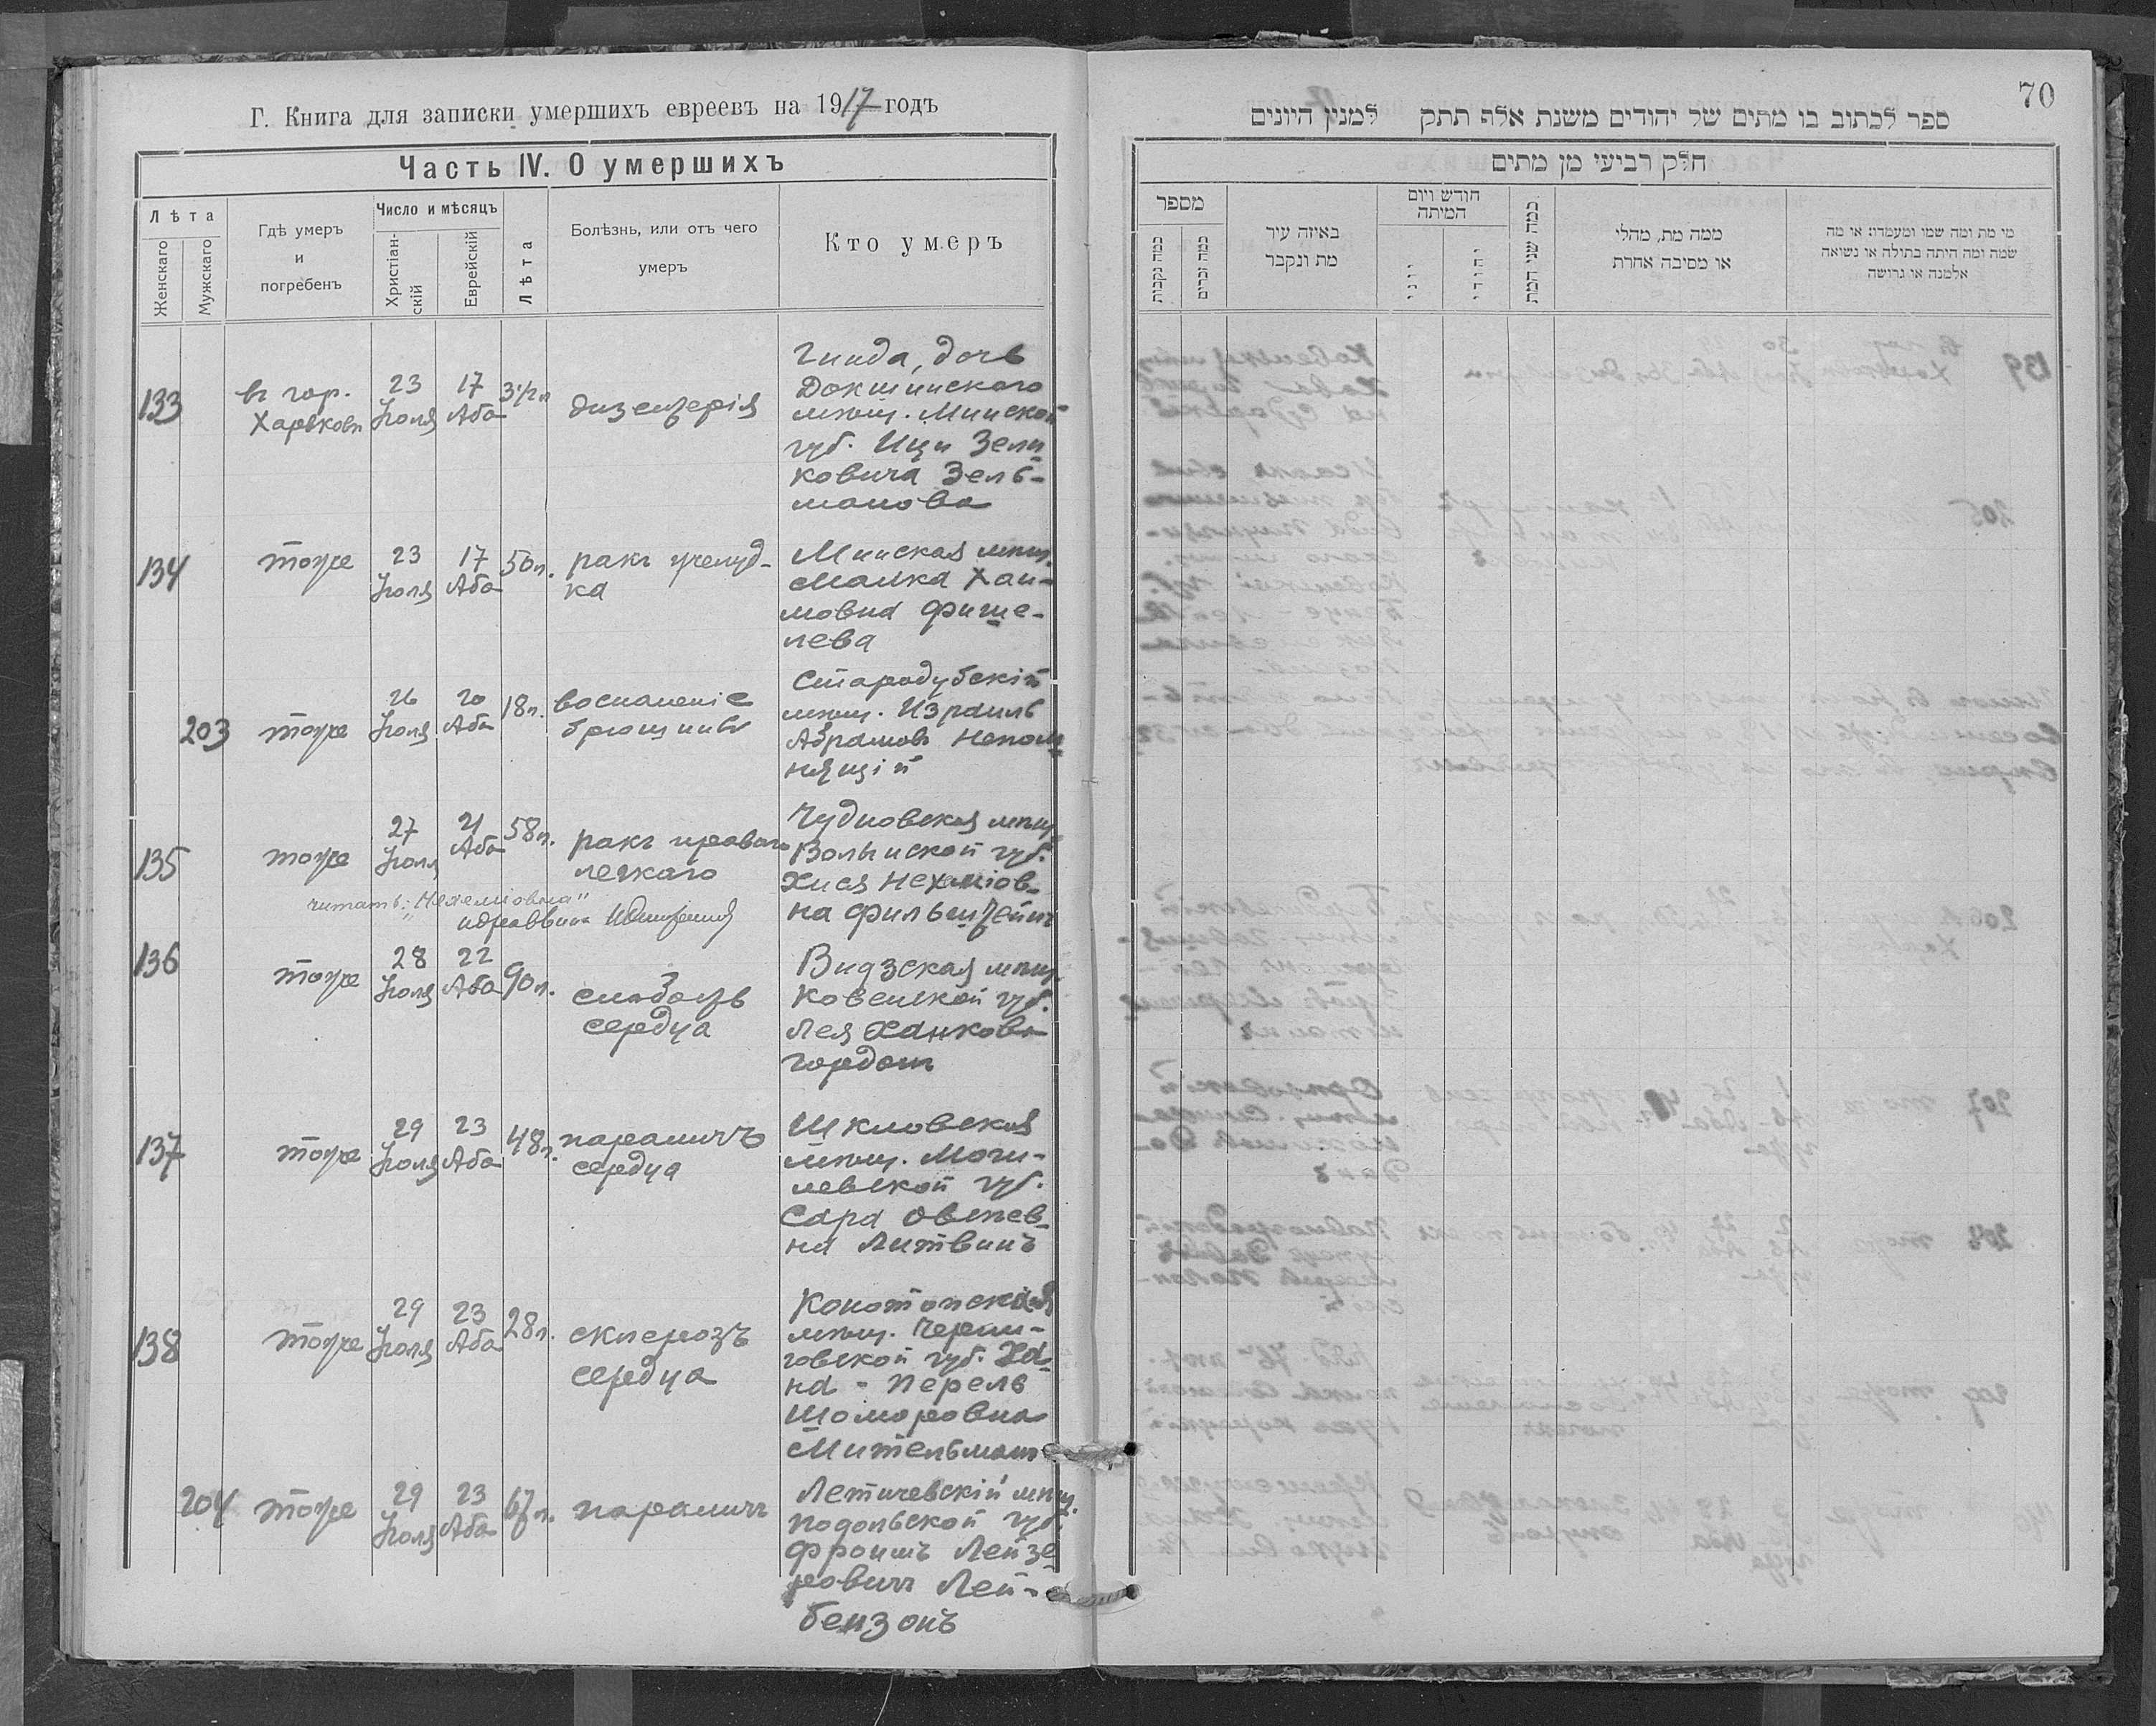 Г. Книга для записки умершихъ евреевъ на 1917 годъ
Часть IV. О умершихъ
Лѣта
Женскаго
Мужскаго
Гдѣ умеръ
и
погребенъ
Число и мѣсяцъ
Христіан-
скій
Еврейскій
Лѣта
Болѣзнь, или отъ чего
умеръ
Кто умеръ
133
въ гор.
Харьковѣ
23
Іюля
17
Аба
3 1/2 л
дизентерія
Гинда, дочь
Докшинскаго
мѣщ. Минской
губ. Ици Зели
ковича Зель-
манова
134
тоже
23
Іюля
17
Аба
50 л.
ракъ желуд-
ка
Минская мѣщ.
Малка Хаи-
мовна Фише-
лева
203
тоже
26
Іюля
20
Аба
18 л.
воспаленіе
брюшины
Стародубскій
мѣщ. Израиль
Абрамовъ Непом
нящій
135
тоже
27
Іюля
21
Аба
58 л.
ракъ праваго
легкаго
Чудновская мѣщ.
Волынской губ.
Хися Нехміов-
на Фильштейнъ
читать: "Нехеміовна"
136
тоже
28
Іюля
22
Аба
90 л.
слабость
сердца
Видзская мѣщ.
Ковенской губ.
Лея Ханкова
Гордонъ
137
тоже
29
Іюля
23
Аба
48 л.
параличъ
сердца
Шкловская
мѣщ. Моги-
левской губ.
Сара Овсеев-
на Литвинъ
138
тоже
29
Іюля
23
Аба
28 л.
склерозъ
сердца
Конотопская
мѣщ. Черни-
говской губ. Ха-
на-Перель
Шоморовна
Мительманъ
204
тоже
29
Іюля
23
Аба
67 л.
параличъ
Летичевскій мѣщ.
Подольской губ.
Фроимъ Лейзе
ровичъ Лей-
бензонъ
70
ספר לכתוב בו מתים של יהודים משנת אלף תתק למנין היונים
חלק רביעי מן מתים
מספר
כמה נקבות
כמה זכרים
באיזה עיר
מת ונקבר
חודש ויום
המיתה
יוני
יהודי
כמה שני המת
ממה מת, מהלי
או מסיבה אחרת
מי מת ומה שמו ומעמדו: או מה
שמה ומה היתה בתולה או נשואה
אלמנה או גרושה